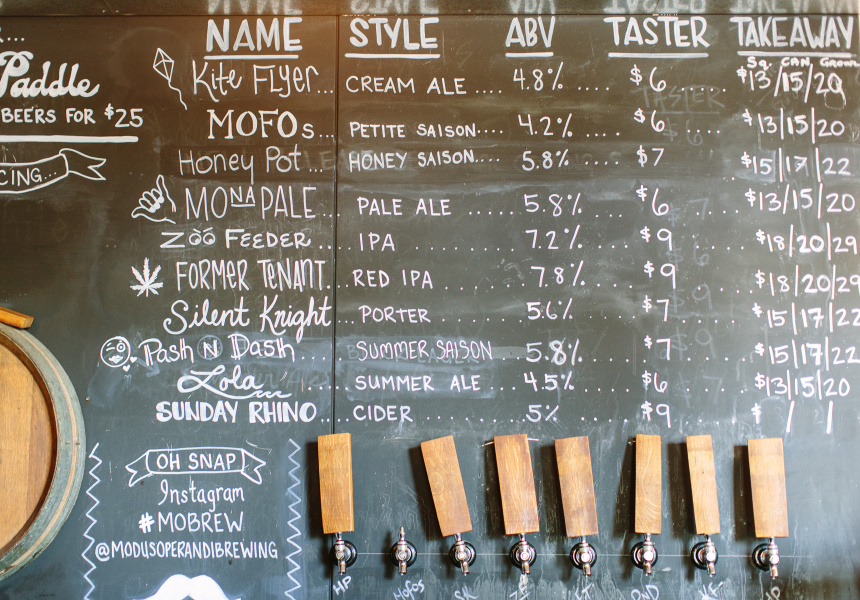 NAME STYLE ABV TASTER TAKEAWAY
Sq. CAN. Growl
Paddle
BEERS FOR $25
CING...
Kite Flyer... CREAM ALE .... 4.8% ..... $6 ..... $13/15/20
MOFOs... PETITE SAISON.... 4.2% ..... $6 ..... $13/15/20
Honey Pot... HONEY SAISON.... 5.8% $7 $15/17/22
MONAPALE... PALE ALE ...... 5.8% ..... $6 ..... $13/15/20
Zöö FEEDER... IPA ..... 7.2% ..... $9 ..... $18/20/29
FORMER TENANT... RED IPA ..... 7.8% ..... $9 ..... $18/20/29
Silent Knight... PORTER ..... 5.6% ..... $7 ..... $15/17/22
Pash N Dash .... SUMMER SAISON ... 5.8% ..... $7 ..... $15/17/22
Lola ..... SUMMER ALE ... 4.5% ..... $6 ..... $13/15/20
SUNDAY RHINO ... CIDER ..... 5% ..... $9 ..... $ / /
OH SNAP
Instagram
#MOBREW
@MODUSOPERANDIBREWING
HP Mofos SR ZF FT PND KF